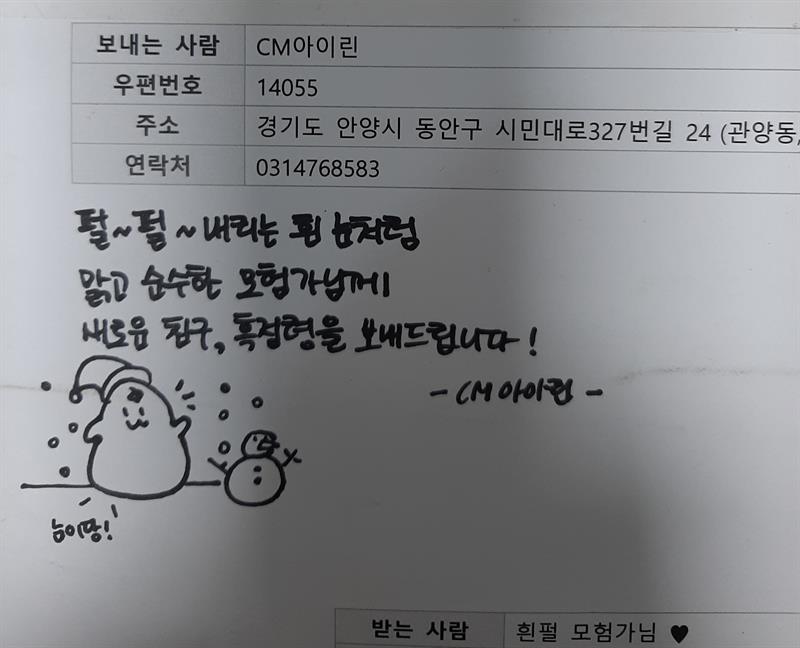 보내는 사람 CM아이린
우편번호 14055
주소 경기도 안양시 동안구 시민대로327번길 24 (관양동,
연락처 0314768583
펄~펄~내리는 흰 눈처럼
맑고 순수한 모험가님께
새로운 친구, 흑점령을 보내드립니다!
-CM아이린-
눈이당!
받는 사람 흰펄 모험가님 ♥